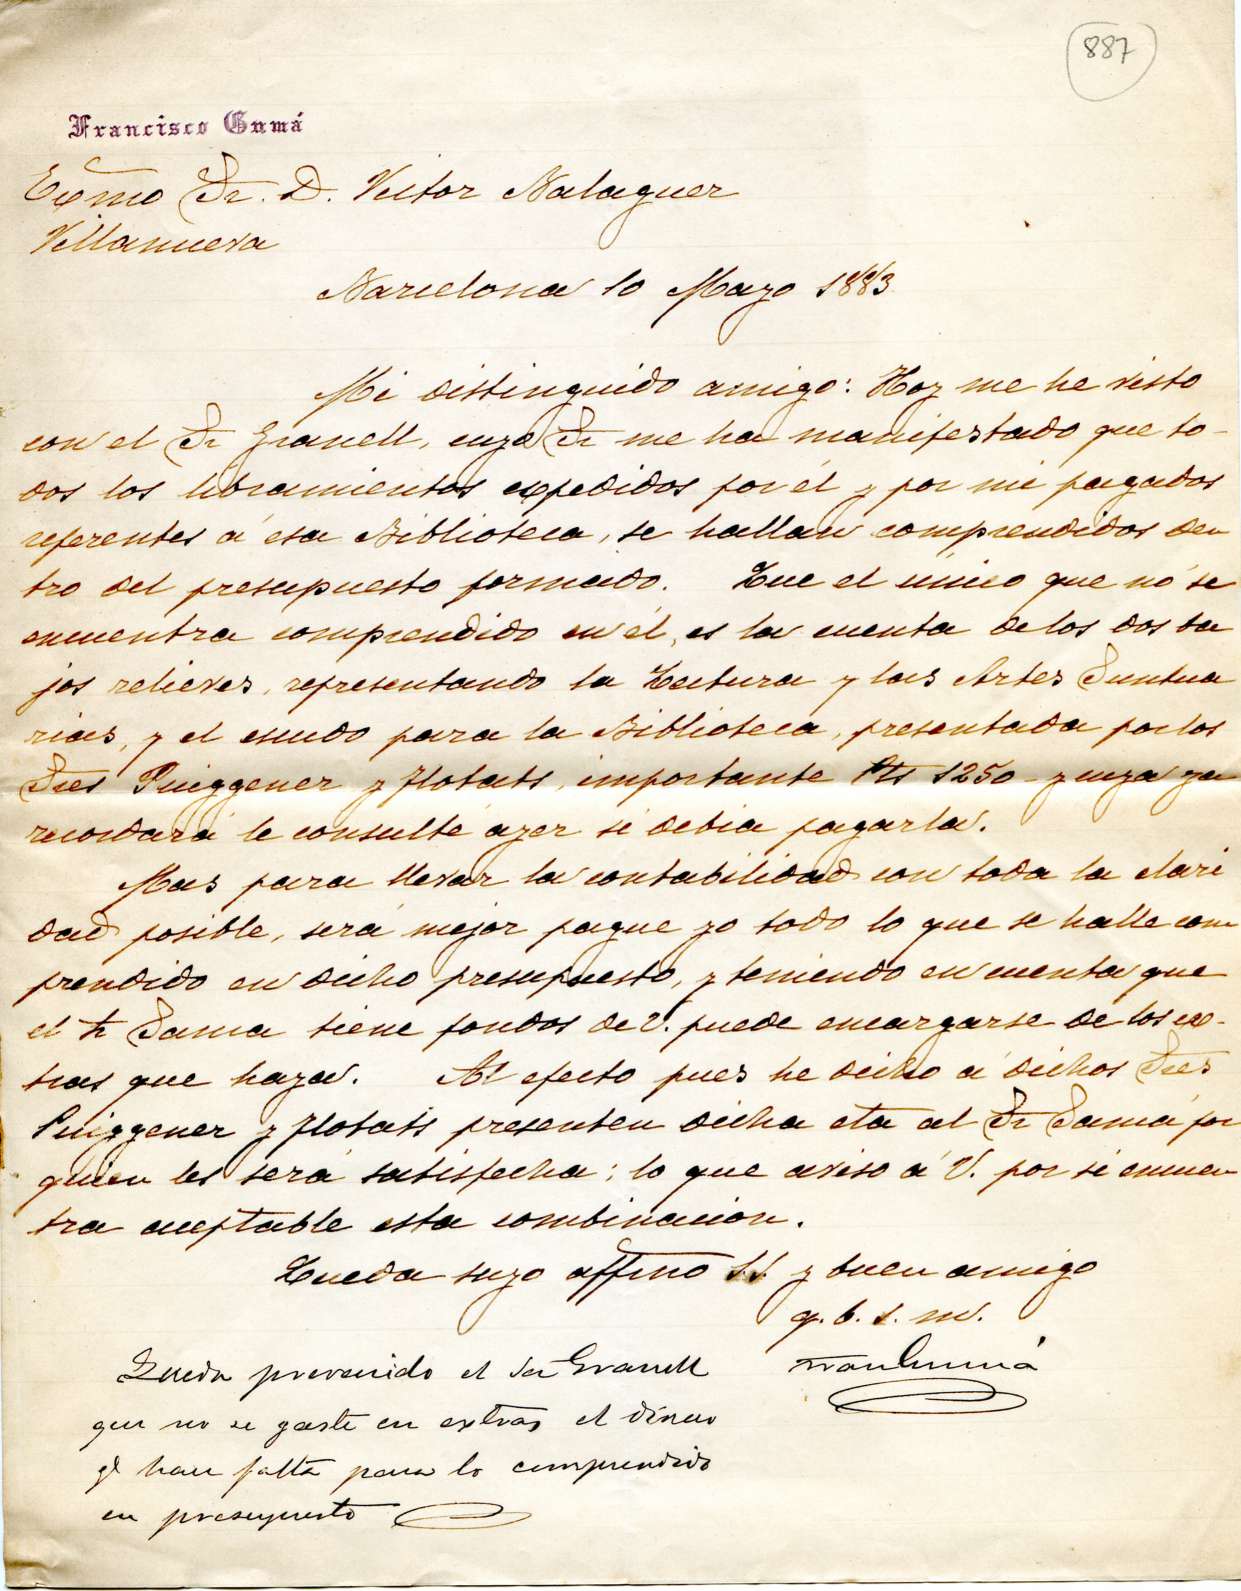 887
Francisco Gumá
Exmo Sr. D. Victor Balaguer
Villanueva
Barcelona 10 Mayo 1883
Mi distinguido amigo: Hoy me he visto
con el Sr Granell, cuyo Sr me ha manifestado que to-
dos los libramientos expedidos por él y por mi pagados
referentes á esa Biblioteca, se hallan comprendidos den
tro del presupuesto formado. Que el unico que nó se
encuentra comprendido en él, es la cuenta de los dos ba
jos relieves, representando la Lectura y las Artes Suntua
rias, y el escudo para la Biblioteca, presentada por los
Sres Puiggener y Flotats, importante Pts 1250 - y cuya ya
recordará le consulté ayer si debia pagarla.
Mas para llevar la contabilidad con toda la clari
dad posible, será mejor pague yo todo lo que se halle com
prendido en dicho presupuesto, y teniendo en cuenta que
el Sr Sama tiene fondos de V. puede encargarse de los ex-
tras que haya. Al efecto pues he dicho á dichos Sres
Puiggener y Flotats presenten dicha cta al Sr Samá por
quien les será satisfecha; lo que aviso á V. por si encuen
tra aceptable esta combinacion.
Queda suyo affmo S.S. y buen amigo
q. b. s. m.
Fran Gumá
Queda prevenido el Sr Granell
que no se gaste en extras el dinero
qe hau falta para lo comprendido
en presupuesto